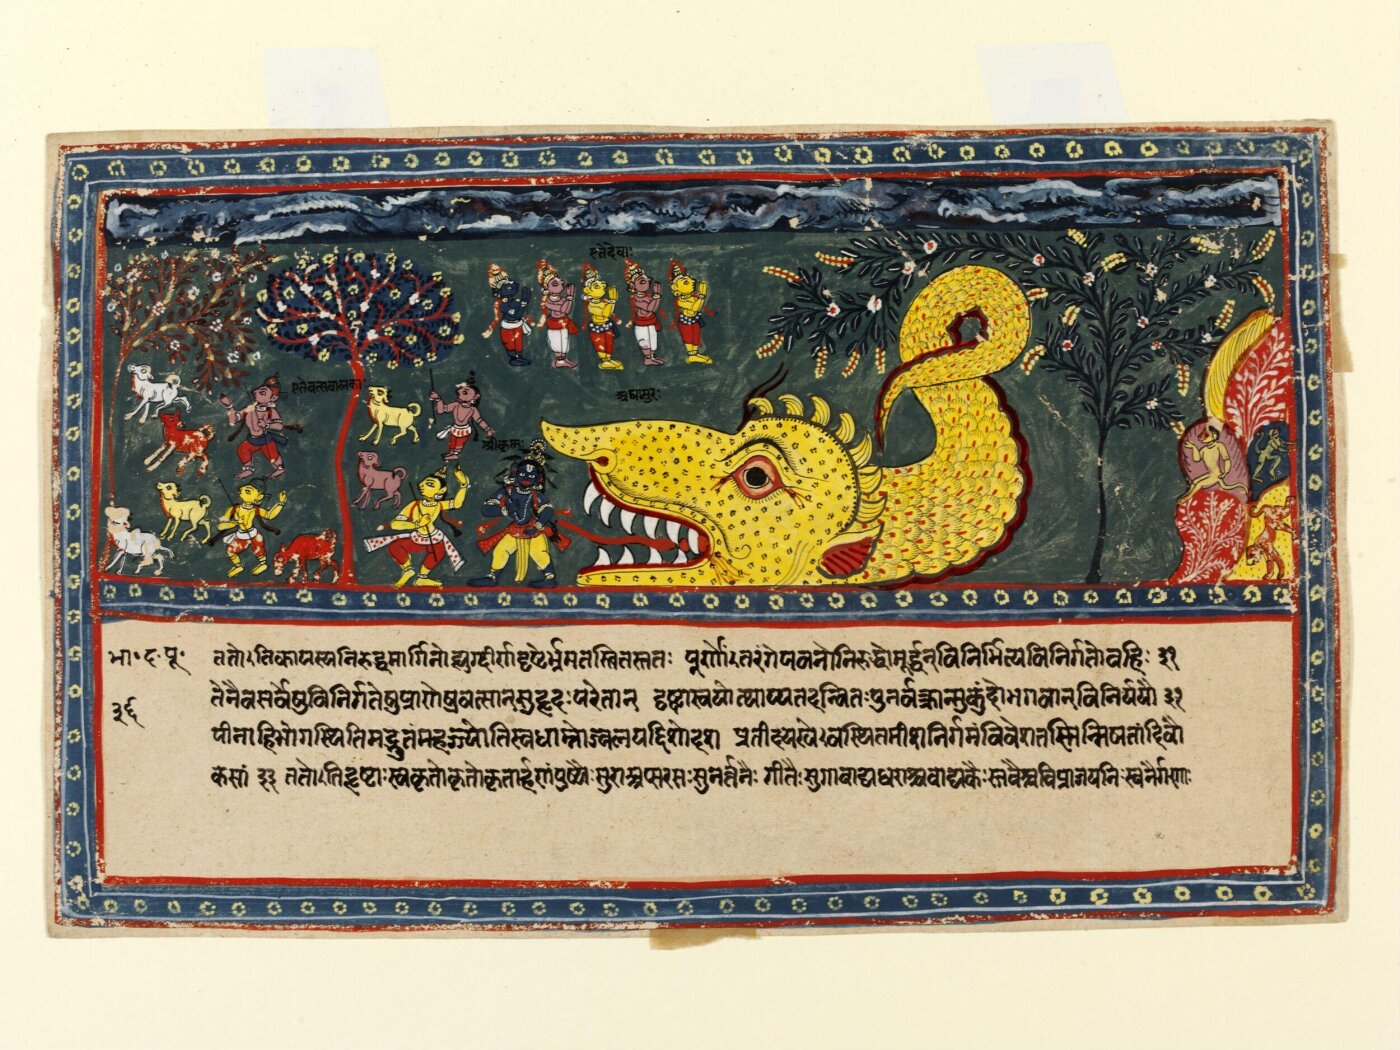 एते देवाः
एते वत्सवालकाः
अघासुरः
श्रीकृष्णः
भा॰ द॰ पू॰
३६
ततोऽतिकायस्य निरुद्धमार्गिनो ह्युद्गीर्णदृष्टेर्भ्रमतस्त्वितस्ततः पूर्णोऽतरंगे पवनो निरुद्धो मूर्द्धन् विनिर्भित्य विनिर्गतो वहिः ३१
तेनैव सर्वेषु विनिर्गतेषु प्राणेषु वत्सान् सुहृदः परेतान् दृष्ट्या स्वयोत्थाप्य तदन्वितः पुनर्वक्त्रान्मुकुंदो भगवान् विनिर्ययौ ३२
पीनाहिभोगस्थितमद्भुतं महज्ज्योतिः स्वधाम्नो ज्वलयद्दिशो दश प्रतीक्ष्य खेऽवस्थितमीशनिर्गमं विवेश तस्मिन् मिषतां दिवौ
कसां ३३ ततोऽतिहृष्टाः स्वकृतोऽकृतार्हणं पुष्पैः सुरा अप्सरसः सुनर्त्तनैः गीतैः सुगा वाद्यधराश्च वाद्यकैः स्तवैश्च विप्रा जयनिःस्वनैर्गणाः